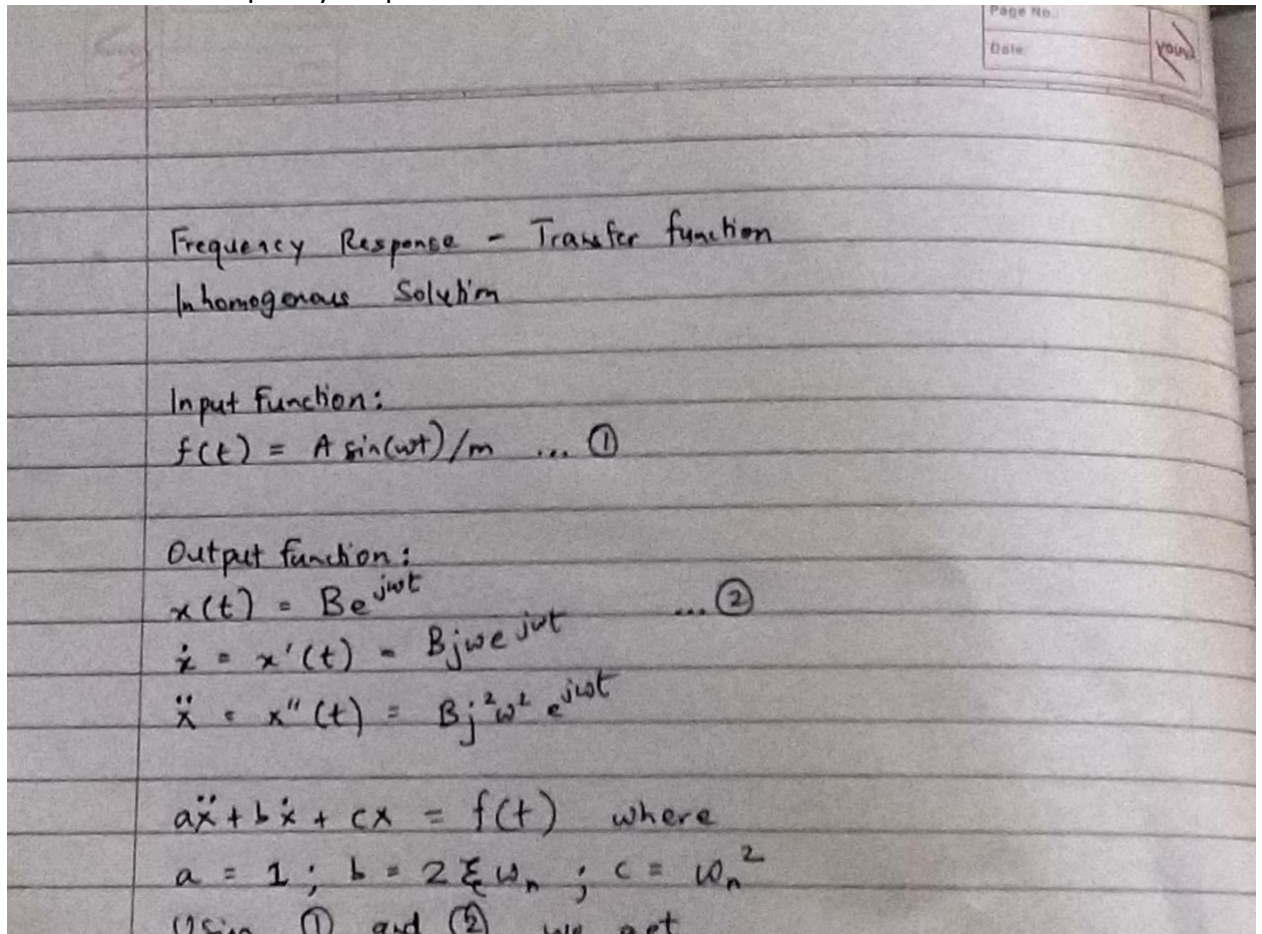 Page No.
Date
Youva
Frequency Response - Transfer function
Inhomogenous Solution
Input function:
f(t) = A sin(ωt)/m ... ①
Output function:
x(t) = Be^jωt ... ②
ẋ = x'(t) = Bjωe^jωt
ẍ = x''(t) = Bj²ω² e^jωt
aẍ + bẋ + cx = f(t) where
a = 1 ; b = 2ξωₙ ; c = ωₙ²
Using ① and ② we get